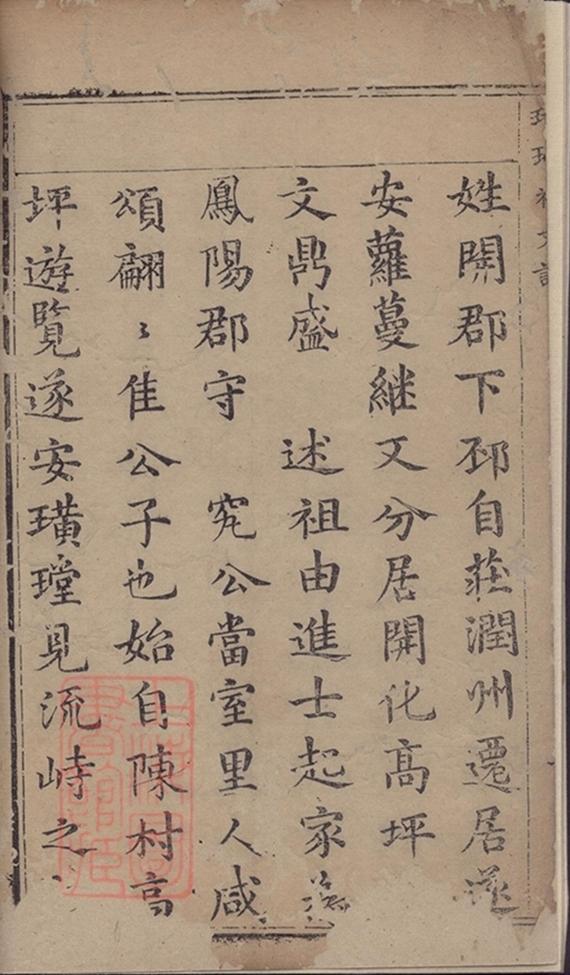 姓開郡下邳自莊潤州遷居遂
安蘿蔓継又分居開化高坪
文鼎盛 述祖由進士起家
鳳陽郡守 究公當室里人咸
頌翩〻佳公子也始自陳村高
坪遊覽遂安璜瑝見流峙之